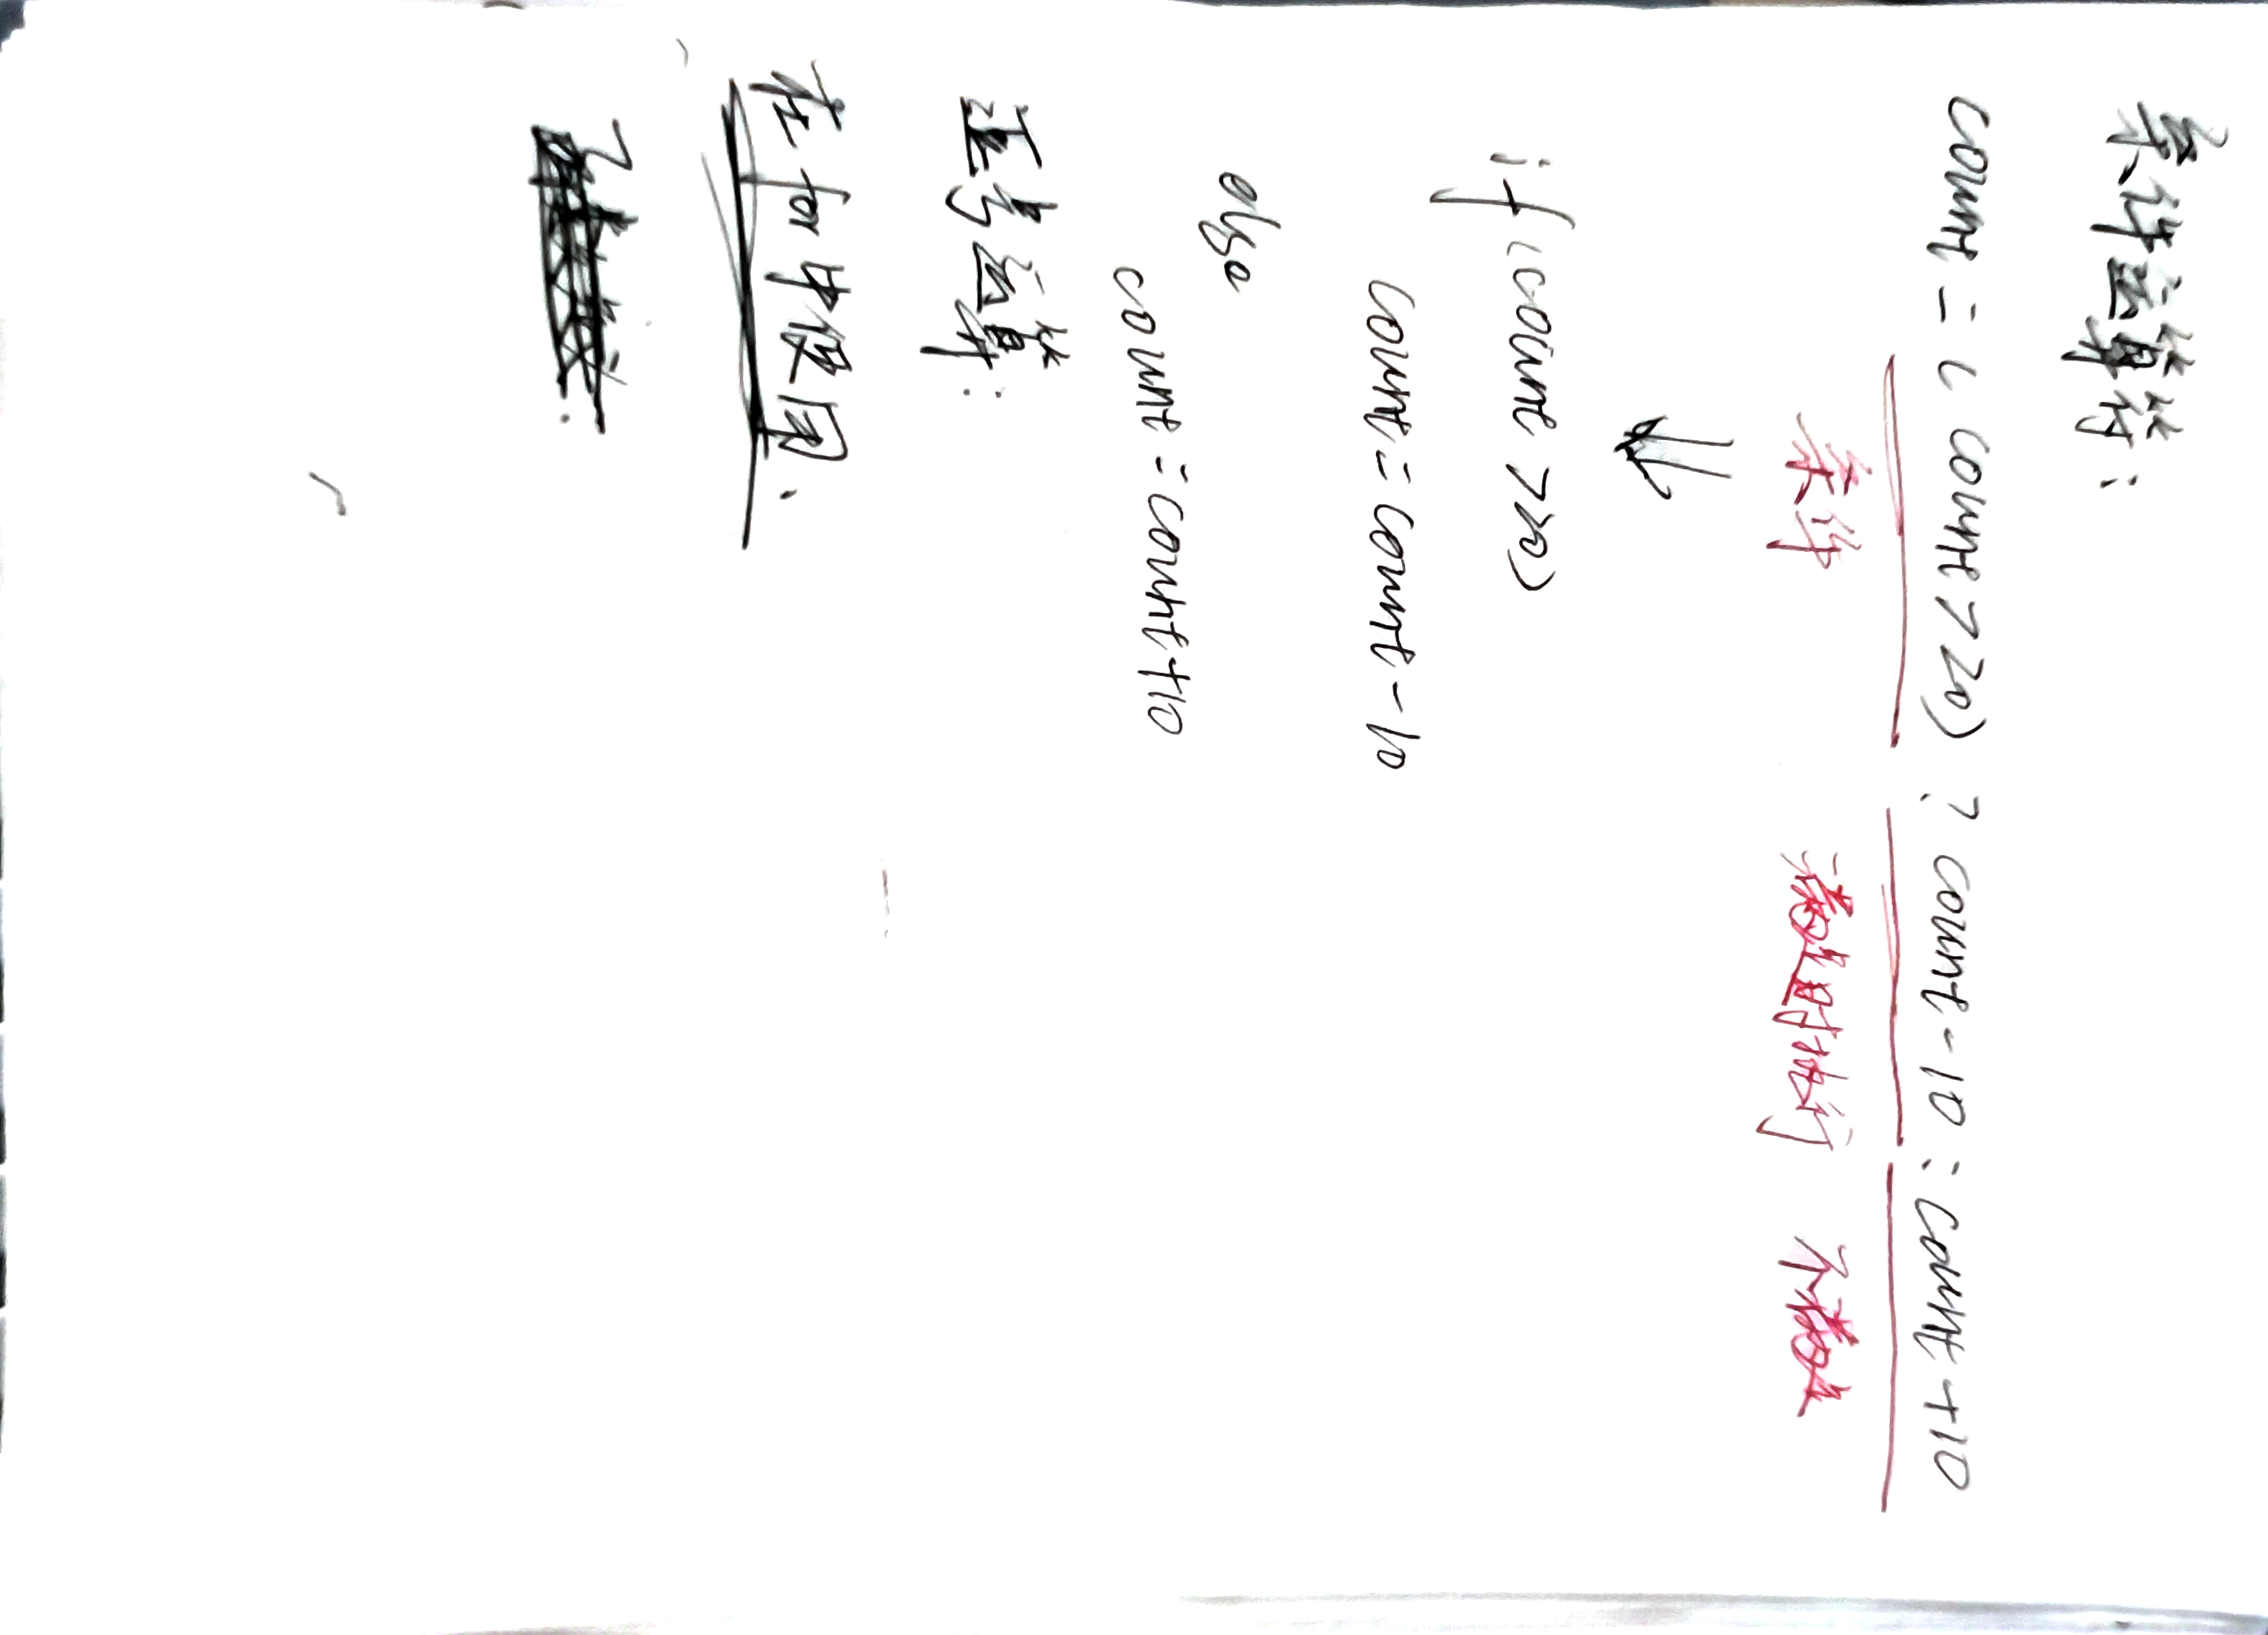 条件运算符:
count = (count>20) ? count-10 : count+10
条件 满足时执行 不满足
⇓
if (count >20)
count = count-10
else
count = count+10
逗号运算:
在 for 中使用.